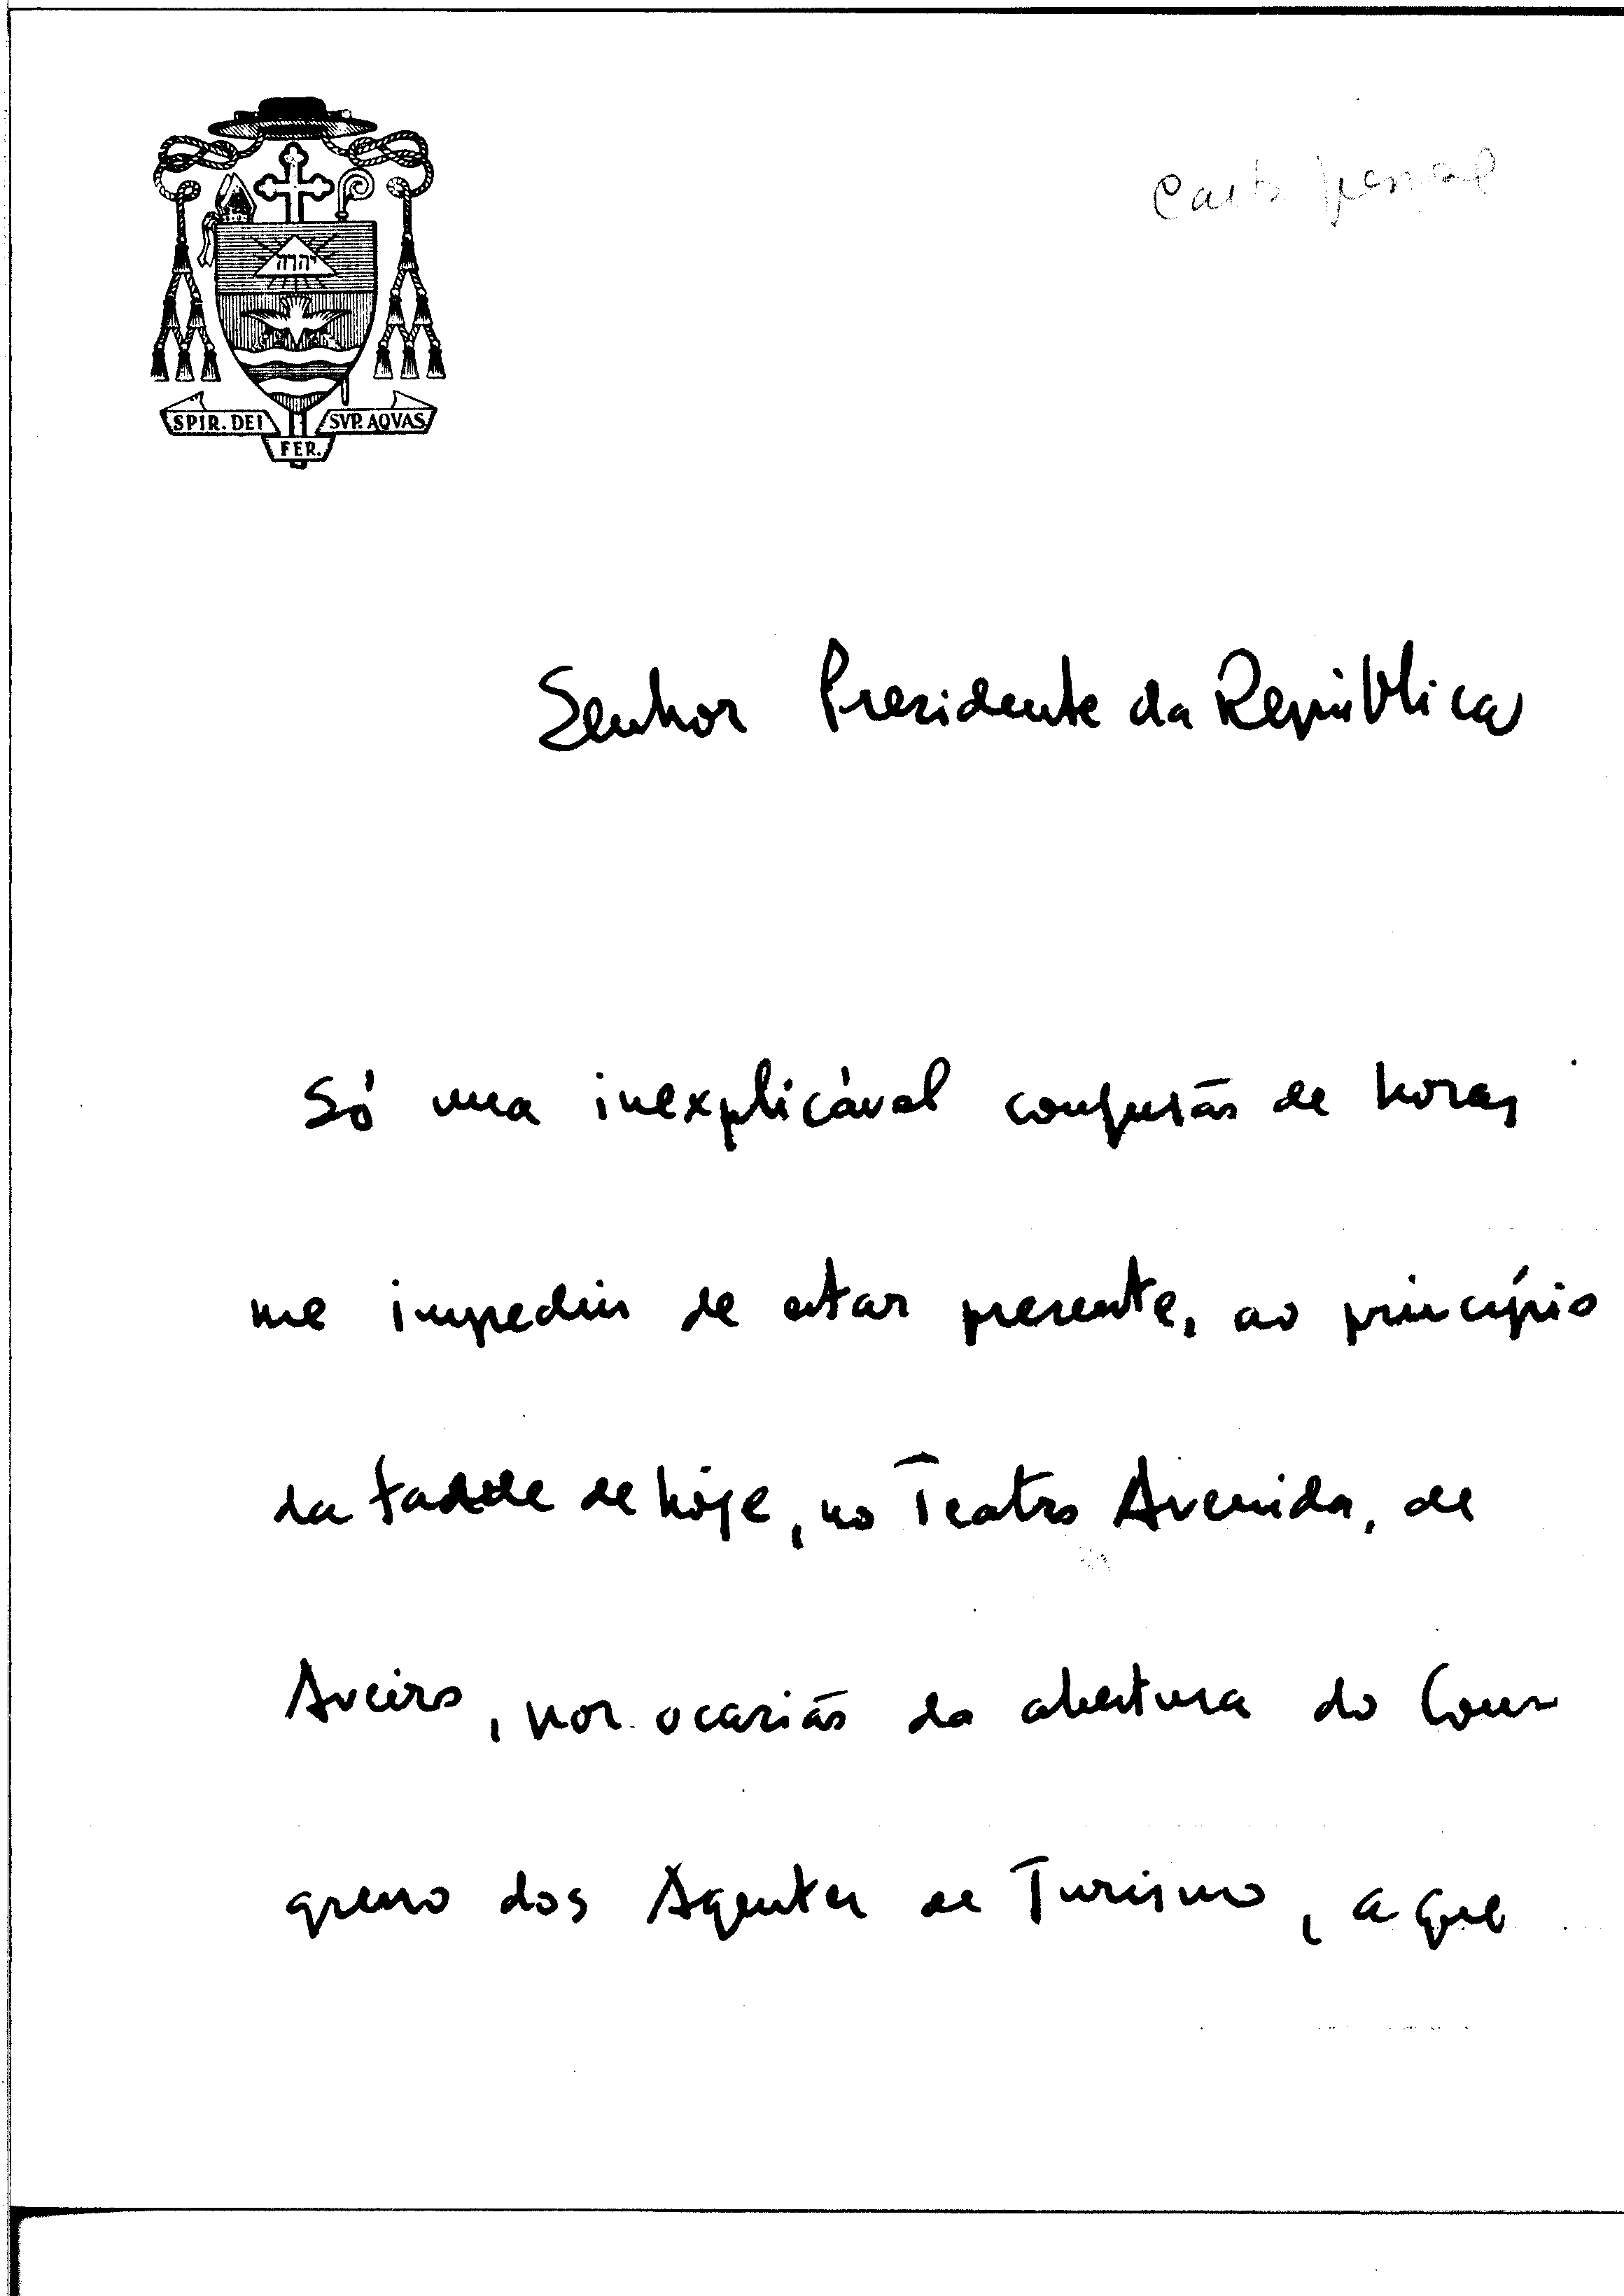 Carta pessoal
יהוה
SPIR. DEI
SVP. AQVAS
FER.
Senhor Presidente da República
Só uma inexplicável confusão de horas
me impediu de estar presente, ao princípio
da tarde de hoje, no Teatro Avenida, de
Aveiro, por ocasião da abertura do Con-
gresso dos Agentes de Turismo, a que